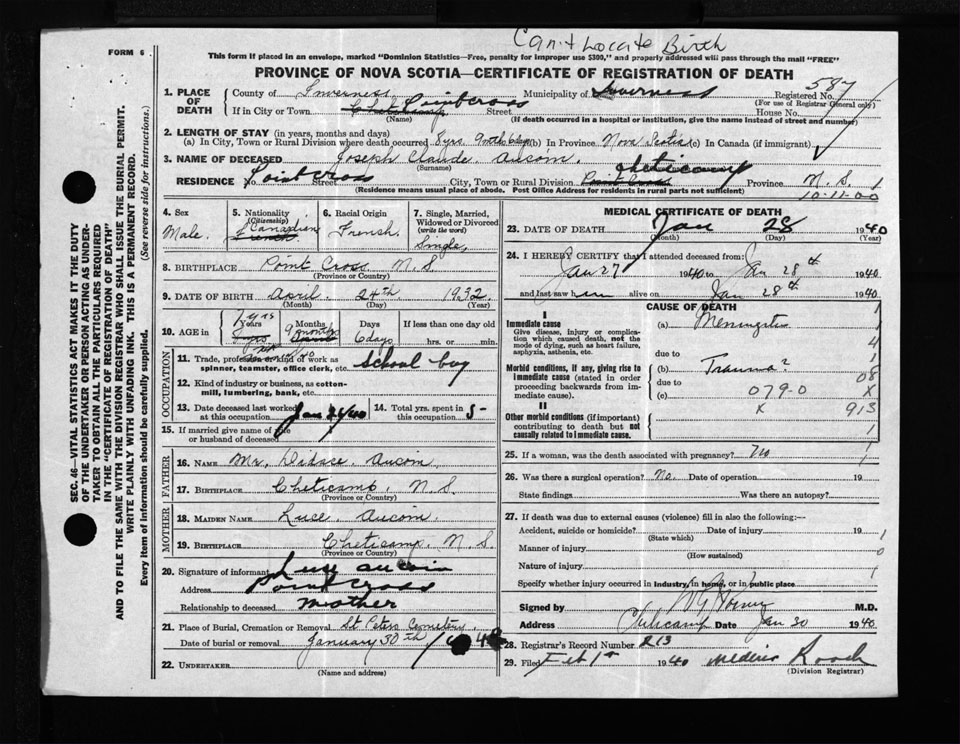 Can't Locate Birth
FORM 6
This form if placed in an envelope, marked "Dominion Statistics—Free, penalty for improper use $300," and properly addressed will pass through the mail "FREE"
PROVINCE OF NOVA SCOTIA—CERTIFICATE OF REGISTRATION OF DEATH
587
1. PLACE OF DEATH County of Inverness Municipality of Inverness Registered No.
(For use of Registrar General only)
If in City or Town Pointcross Street House No.
(Name) (If death occurred in a hospital or institution, give the name instead of street and number)
2. LENGTH OF STAY (in years, months and days)
(a) In City, Town or Rural Division where death occurred 8 yrs 9 mths 6 days (b) In Province Nova Scotia (c) In Canada (if immigrant)
3. NAME OF DECEASED Joseph Claude. Aucoin.
(Surname)
RESIDENCE Pointcross Street City, Town or Rural Division Point Cross Cheticamp Province N. S.
(Residence means usual place of abode. Post Office Address for residents in rural parts not sufficient)
10-11-00
4. Sex Male.
5. Nationality (Citizenship) French Canadian
6. Racial Origin French.
7. Single, Married, Widowed or Divorced (write the word) Single,
8. BIRTHPLACE Point Cross N. S.
(Province or Country)
9. DATE OF BIRTH April. 24th 1932.
(Month) (Day) (Year)
10. AGE in 7 yrs Years 9 months Months 6 days Days If less than one day
hrs. or min.
OCCUPATION
11. Trade, profession or kind of work as spinner, teamster, office clerk, etc. School boy
12. Kind of industry or business, as cotton-mill, lumbering, bank, etc.
13. Date deceased last worked at this occupation Jan 26/40
14. Total yrs. spent in this occupation
15. If married give name of wife or husband of deceased
FATHER
16. NAME Mr. Didace. Aucoin
17. BIRTHPLACE Cheticamp, N. S.
(Province or Country)
MOTHER
18. MAIDEN NAME Luce. Aucoin.
19. BIRTHPLACE Cheticamp. N. S
(Province or Country)
20. Signature of informant Luce Aucoin
Address Pointcross
Relationship to deceased mother
21. Place of Burial, Cremation or Removal St Peters Cemetery.
Date of burial or removal January 30th 1940
22. UNDERTAKER
(Name and address)
MEDICAL CERTIFICATE OF DEATH
23. DATE OF DEATH Jan 28 1940
(Month) (Day) (Year)
24. I HEREBY CERTIFY that I attended deceased from:
Jan 27 1940 to Jan 28th 1940
and last saw him alive on Jan 28th 1940
CAUSE OF DEATH
I
Immediate cause
Give disease, injury or complication which caused death, not the mode of dying, such as heart failure, asphyxia, asthenia, etc.
(a) Meningitis
due to
Morbid conditions, if any, giving rise to immediate cause (stated in order proceeding backwards from immediate cause).
(b) Trauma?
due to
(c) 079-0
II
Other morbid conditions (if important) contributing to death but not causally related to immediate cause.
x 913
25. If a woman, was the death associated with pregnancy? No
26. Was there a surgical operation? No. Date of operation 19
State findings Was there an autopsy?
27. If death was due to external causes (violence) fill in also the following:—
Accident, suicide or homicide? Date of injury 19
(State which)
Manner of injury
(How sustained)
Nature of injury
Specify whether injury occurred in industry, in home, or in public place
Signed by M.D.
Address Cheticamp Date Jan 30 1940
28. Registrar's Record Number 213
29. Filed Feb 1st 1940 Mederic Roach
(Division Registrar)
SEC. 46—VITAL STATISTICS ACT MAKES IT THE DUTY OF THE UNDERTAKER OR PERSON ACTING AS UNDERTAKER TO OBTAIN ALL THE PARTICULARS REQUIRED IN THE "CERTIFICATE OF REGISTRATION OF DEATH" AND TO FILE THE SAME WITH THE DIVISION REGISTRAR WHO SHALL ISSUE THE BURIAL PERMIT.
WRITE PLAINLY WITH UNFADING INK. THIS IS A PERMANENT RECORD.
Every item of information should be carefully supplied. (See reverse side for instructions.)